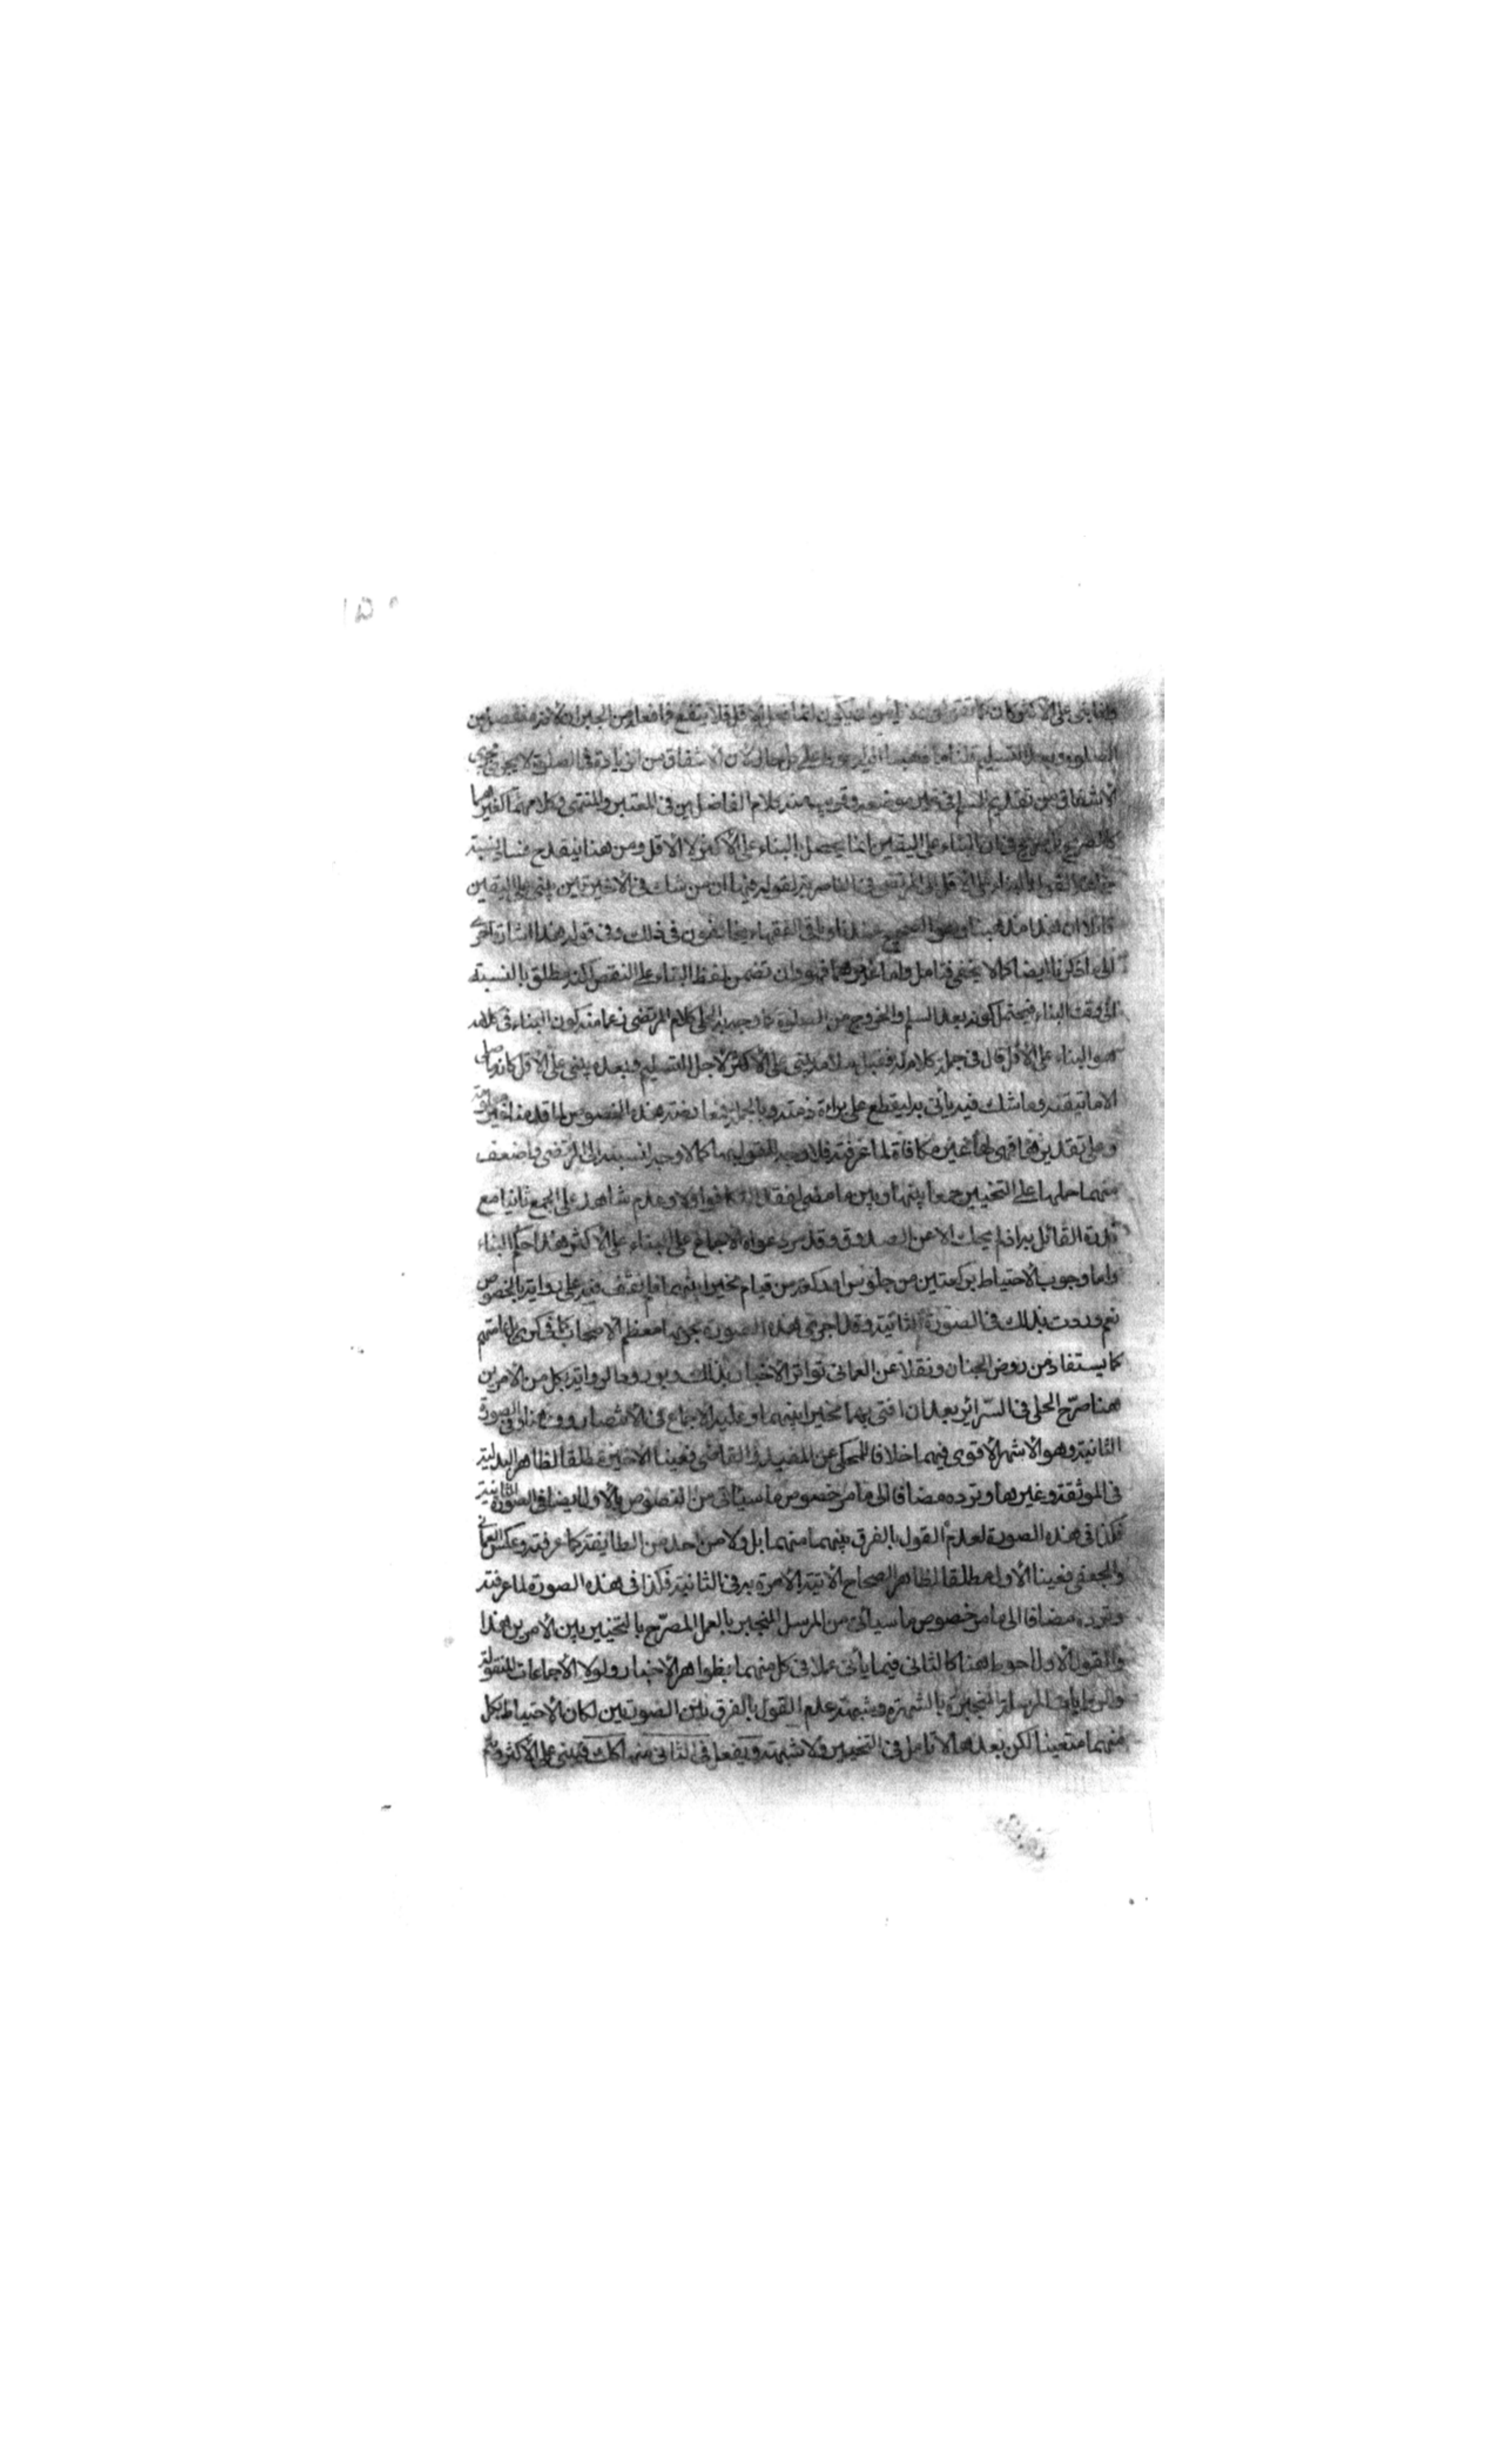 الصلوة وبعد التسليم قلنا ما ذهبنا اليه احوط على كل حال لان الاشفاق من الزيادة في الصلوة لا يجري مجرى
الاشفاق من تقديم السلم في غير موضعه وقريب منه كلام الفاضلين في المعتبر والمنتهى وكلامهما كغيرهما
كالصريح بل صريح في ان البناء على اليقين انما يحصل بالبناء على الاكثر لا الاقل ومن هنا ينقدح فساد نسبة
القول بالبناء على الاقل الى المرتضى في الناصرية لقوله فيها ان من شك في الاخيرتين بنى على اليقين
قائلا ان هذا مذهبنا وهو الصحيح عندنا وباقي الفقهاء يخالفون في ذلك وفي قوله هذا اشارة اخرى
الى ما ذكرنا ايضا كما لا يخفى فتامل واما غيرهما فهو وان تضمن لفظ البناء على النقص لكنه مطلق بالنسبة
الى وقت البناء فيحتمل كونه بعد السلم والخروج من الصلوة كما وجه به الحلي كلام المرتضى زعما منه كون البناء في كلامه
هو البناء على الاقل قال في جملة كلام له فقبل سلامه يبني على الاكثر لاجل التسليم وبعده يبني على الاقل كانه ما صلى
الا ما تيقنه وما شك فيه يأتي به ليقطع على براءة ذمته وبالجملة فمعارضة هذه النصوص لما قدمنا غير معلومة
وعلى تقديرها فهي لها غير مكافاة لما عرفته فلا وجه للقول بها كما لا وجه لنسبته الى المرتضى واضعف
منهما حملها على التخيير جمعا بينها وبين ما مضى لفقد التكافؤ اولا وعدم شاهد على الجمع ثانيا مع
ندرة القائل به اذ لم يحك الا عن الصدوق وقد مر دعواه الاجماع على البناء على الاكثر هذا حكم البناء
واما وجوب الاحتياط بركعتين من جلوس او ركعة من قيام مخيرا بينهما فلم نقف فيه على رواية بالخصوص
نعم وردت بذلك في الصورة الثانية وقد اجرى هذه الصورة مجريها معظم الاصحاب كما في الذكرى بل عامتهم
كما يستفاد من روض الجنان ونقلا عن العماني تواتر الاخبار بذلك وبورود الرواية بكل من الامرين
هنا صرح الحلي في السرائر بعد ان افتى بهما مخيرا بينهما وعليه الاجماع في الانتصار والخلاف في الصورة
الثانية وهو الاشهر الاقوى فيهما خلافا للمحكي عن المفيد والقاضي فعينا الاخير مطلقا لظاهر البدلية
في الموثقة وغيرها وترده مضافا الى ما مر خصوص ما سيأتي من النصوص بالاول ايضا في الصورة الثانية
فكذا في هذه الصورة لعدم القول بالفرق بينهما منهما بل ولا من احد من الطايفة كما عرفته وعكس العماني
والجعفي فعينا الاول مطلقا لظاهر الصحاح الاتية الامرة به في الثانية فكذا في هذه الصورة لما عرفته
وترده مضافا الى ما مر خصوص ما سيأتي من المرسل المنجبر بالعمل المصرح بالتخيير بين الامرين هذا
والقول الاول احوط هنا كالثاني فيما يأتي عملا في كل منهما بظواهر الاخبار ولولا الاجماعات المنقولة
والروايات المرسلة المنجبرة بالشهرة وشبهة عدم القول بالفرق بين الصورتين لكان الاحتياط بكل
منهما متعينا لكن بعدها لا تامل في التخيير ولا شبهة ويفعل في الثاني منها كك فيبني على الاكثر ويتم